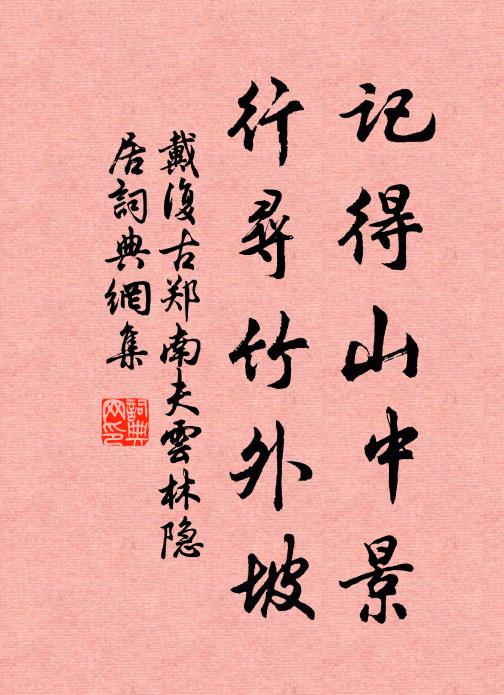 記得山中景
行尋竹外坡
戴復古郑南夫雲林隐
居詞典網集
詞典
网印